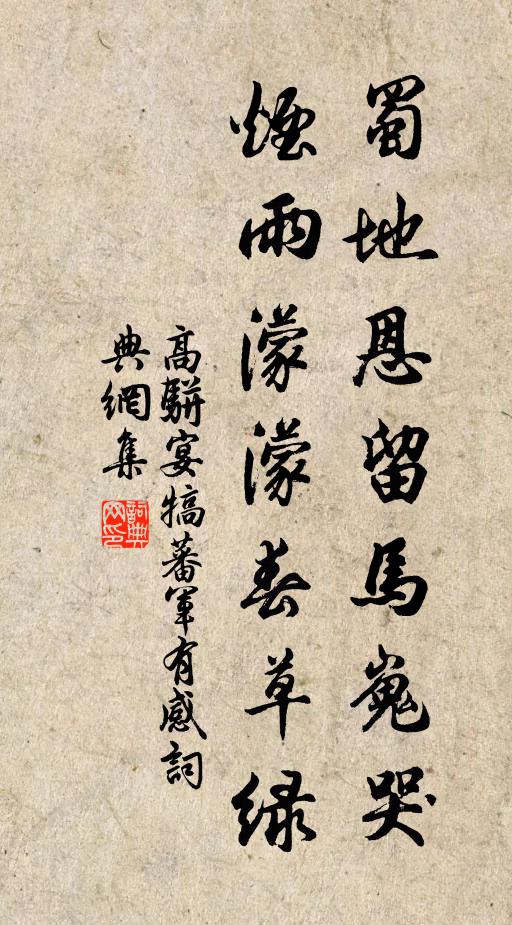 蜀地恩留馬嵬哭
煙雨濛濛春草綠
高駢宴犒蕃軍有感詞
典網集
詞典網印